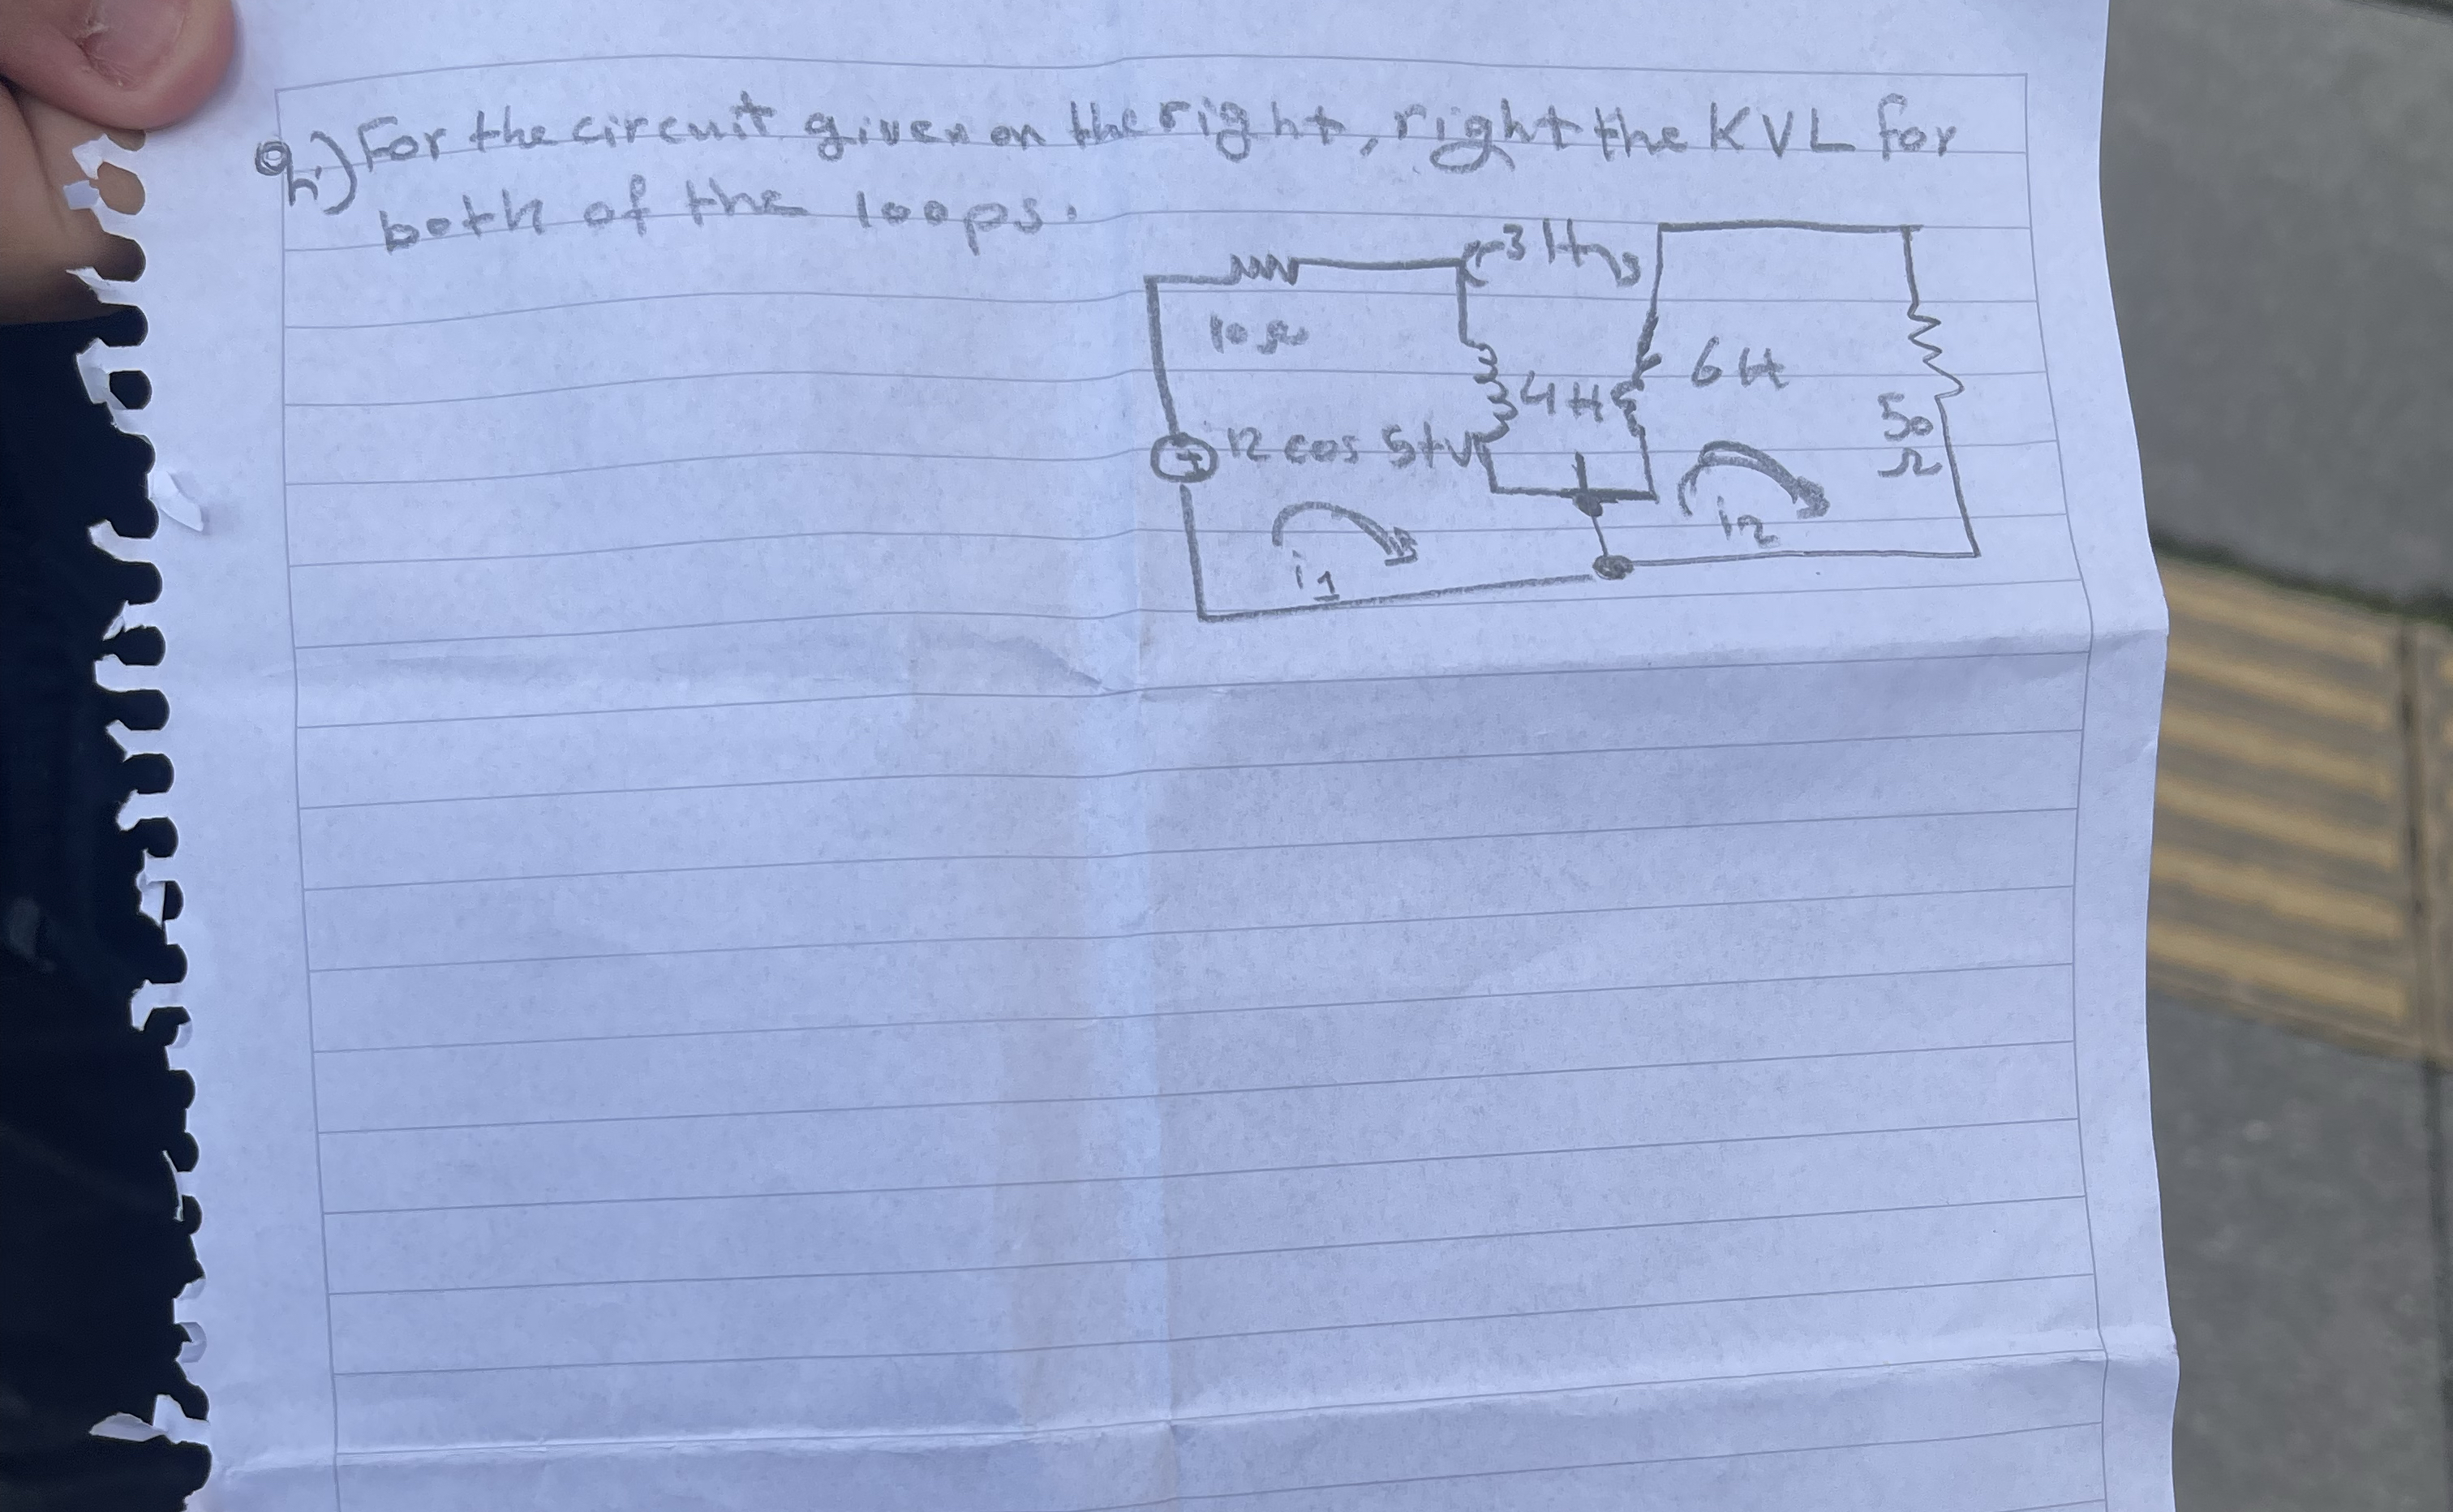 Q.) For the circuit given on the right, right the KVL for
both of the loops.
3 H
10 Ω
4 H
6 H
12 cos 5t V
50
Ω
i1
i2